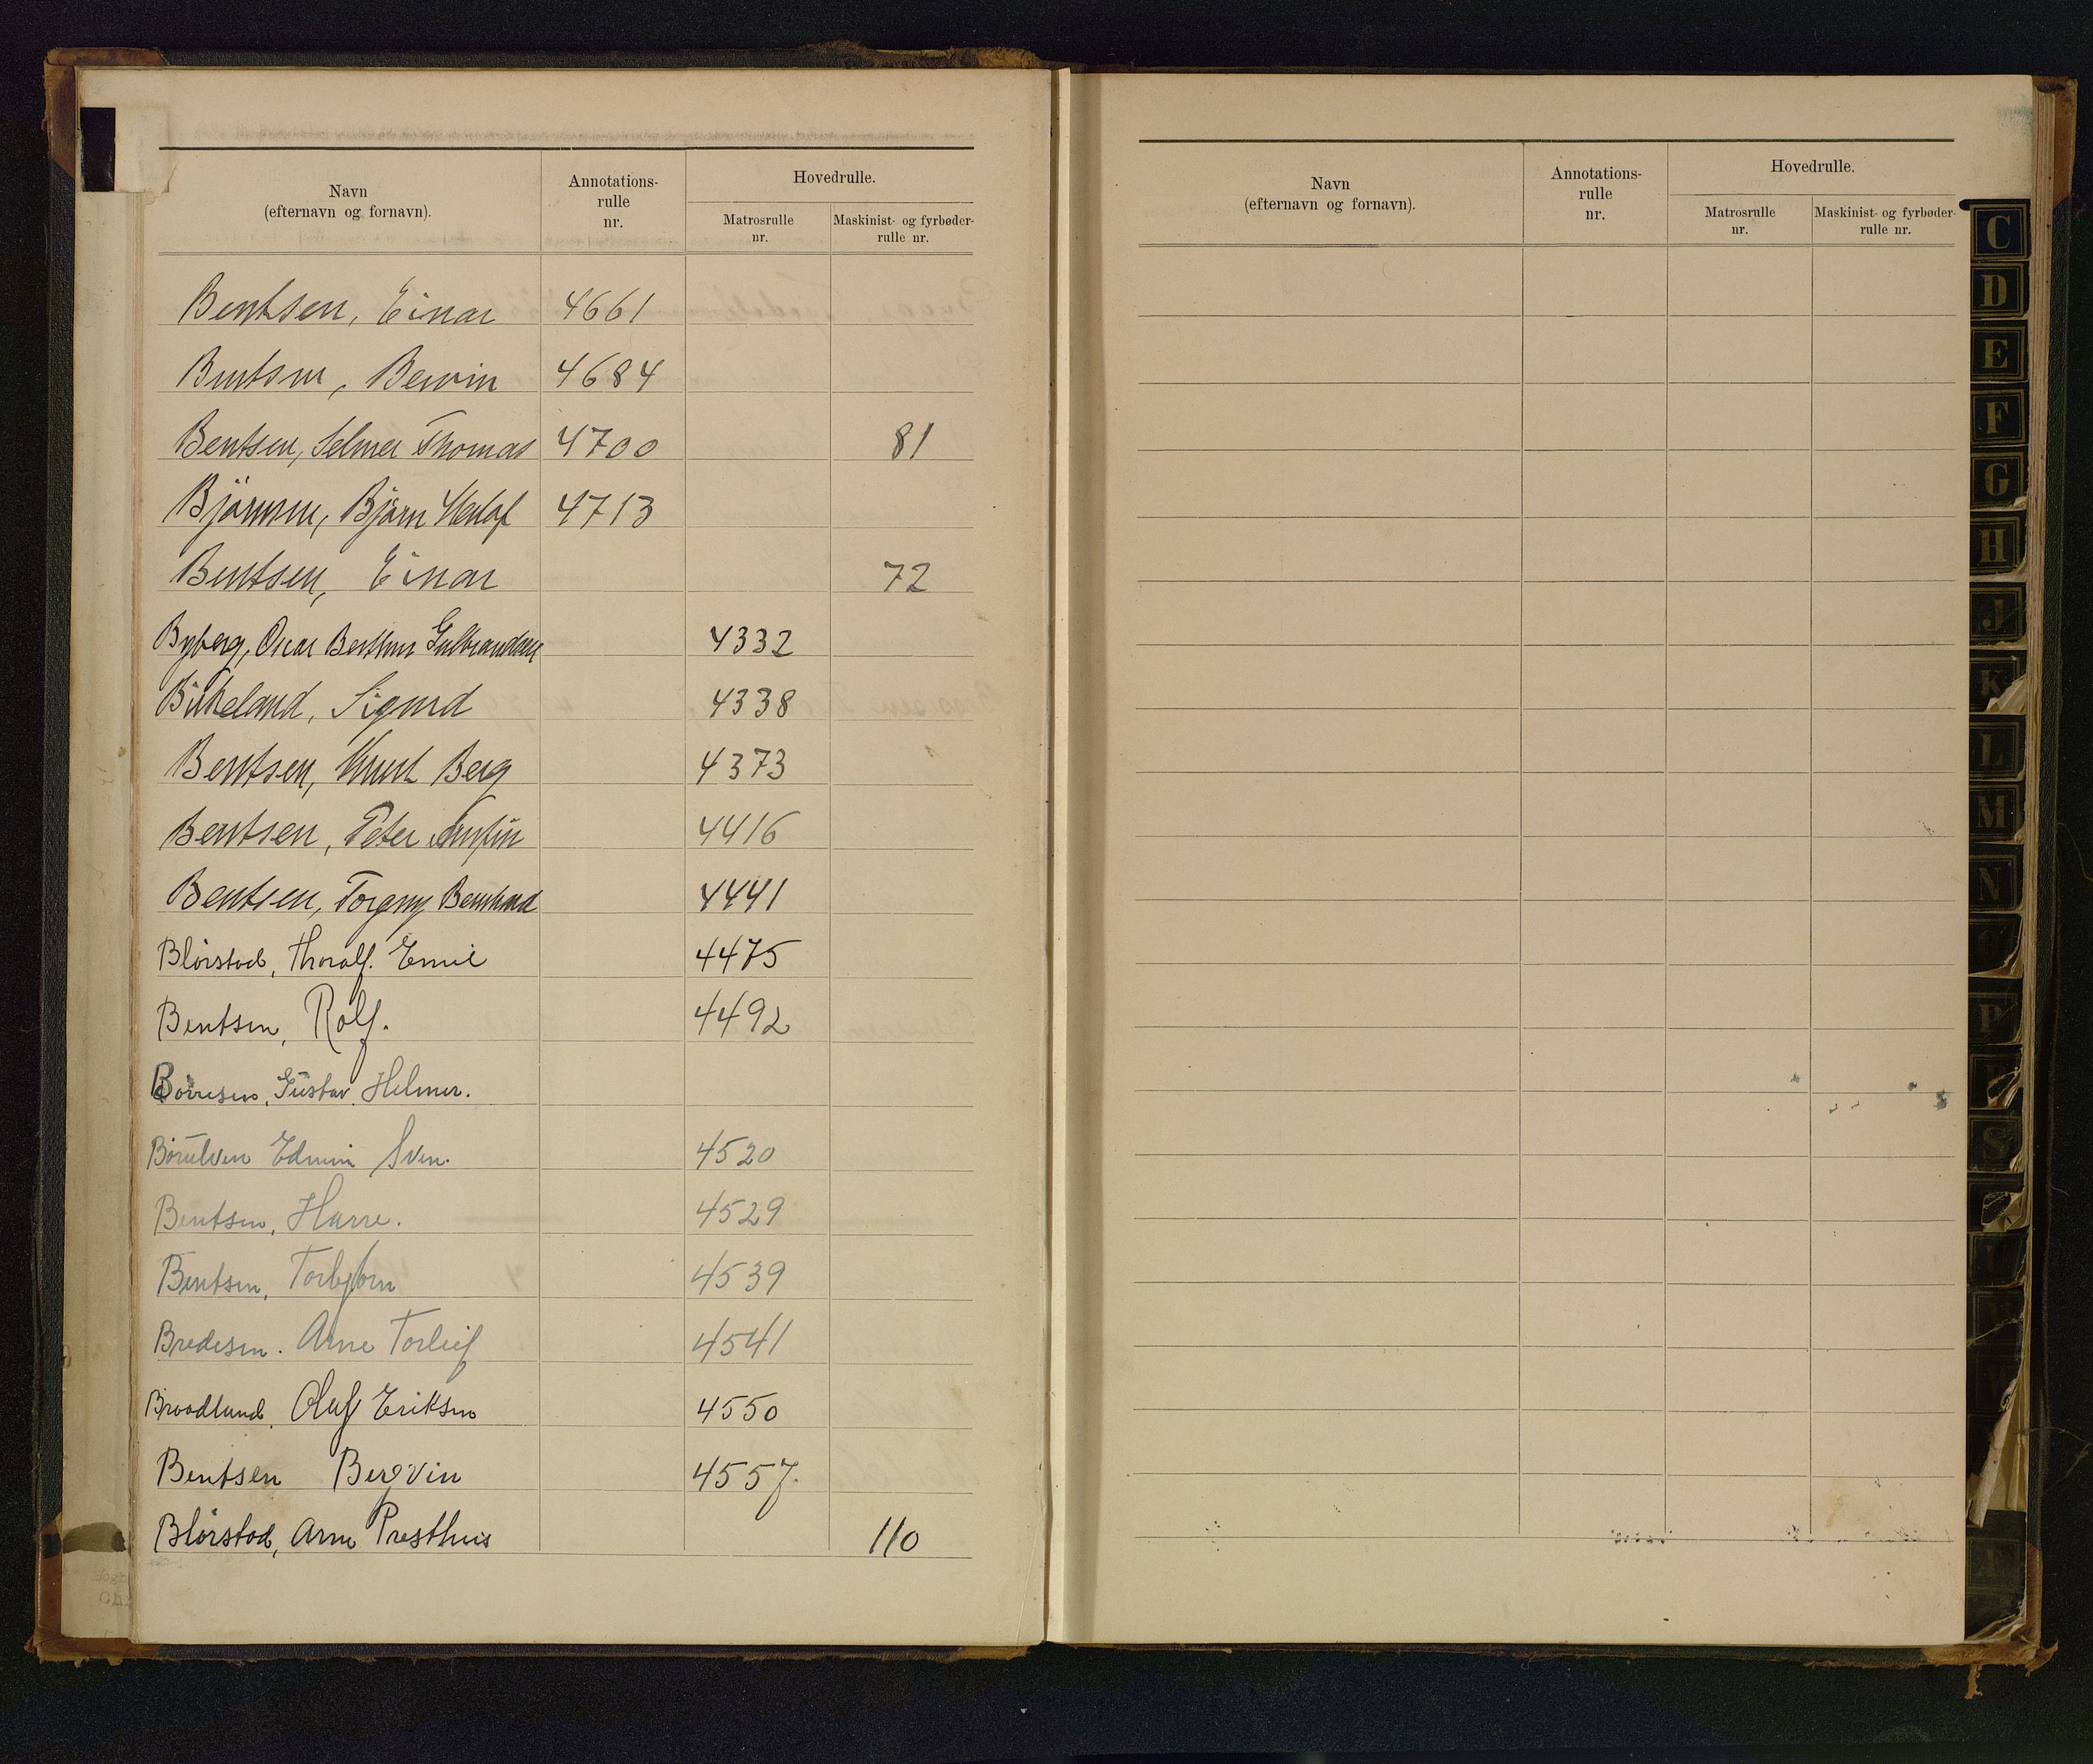 Navn
(efternavn og fornavn).
Annotations-
rulle
nr.
Hovedrulle.
Matrosrulle
nr.
Maskinist- og fyrbøder-
rulle nr.
Bentsen, Einar 4661
Bentsen, Bervin 4684
Bentsen, Selmer Thomas 4700 81
Bjørnsen, Bjørn 4713
Bentsen, Einar 72
Byberg, Oscar Berthin Gulbrandsen 4332
Birkeland, Sigurd 4338
Bentsen, Knut Berg 4373
Bentsen, Peter 4416
Bentsen, Torgny Bernhard 4441
Blørstad, Thoralf. Emil 4475
Bentsen, Rolf. 4492
Børresen, Gustav Helmer.
Edmin Sven. 4520
Bentsen, Harre. 4529
Bentsen, Torbjørn 4539
Bredesen. Arne Torleif 4541
Braadlund, Oluf Eriksen 4550
Bentsen Bergvin 4557.
Blørstad, Arne Presthus 110
Navn
(efternavn og fornavn).
Annotations-
rulle
nr.
Hovedrulle.
Matrosrulle
nr.
Maskinist- og fyrbøder-
rulle nr.
C
D
E
F
G
H
J
K
L
M
N
P
S